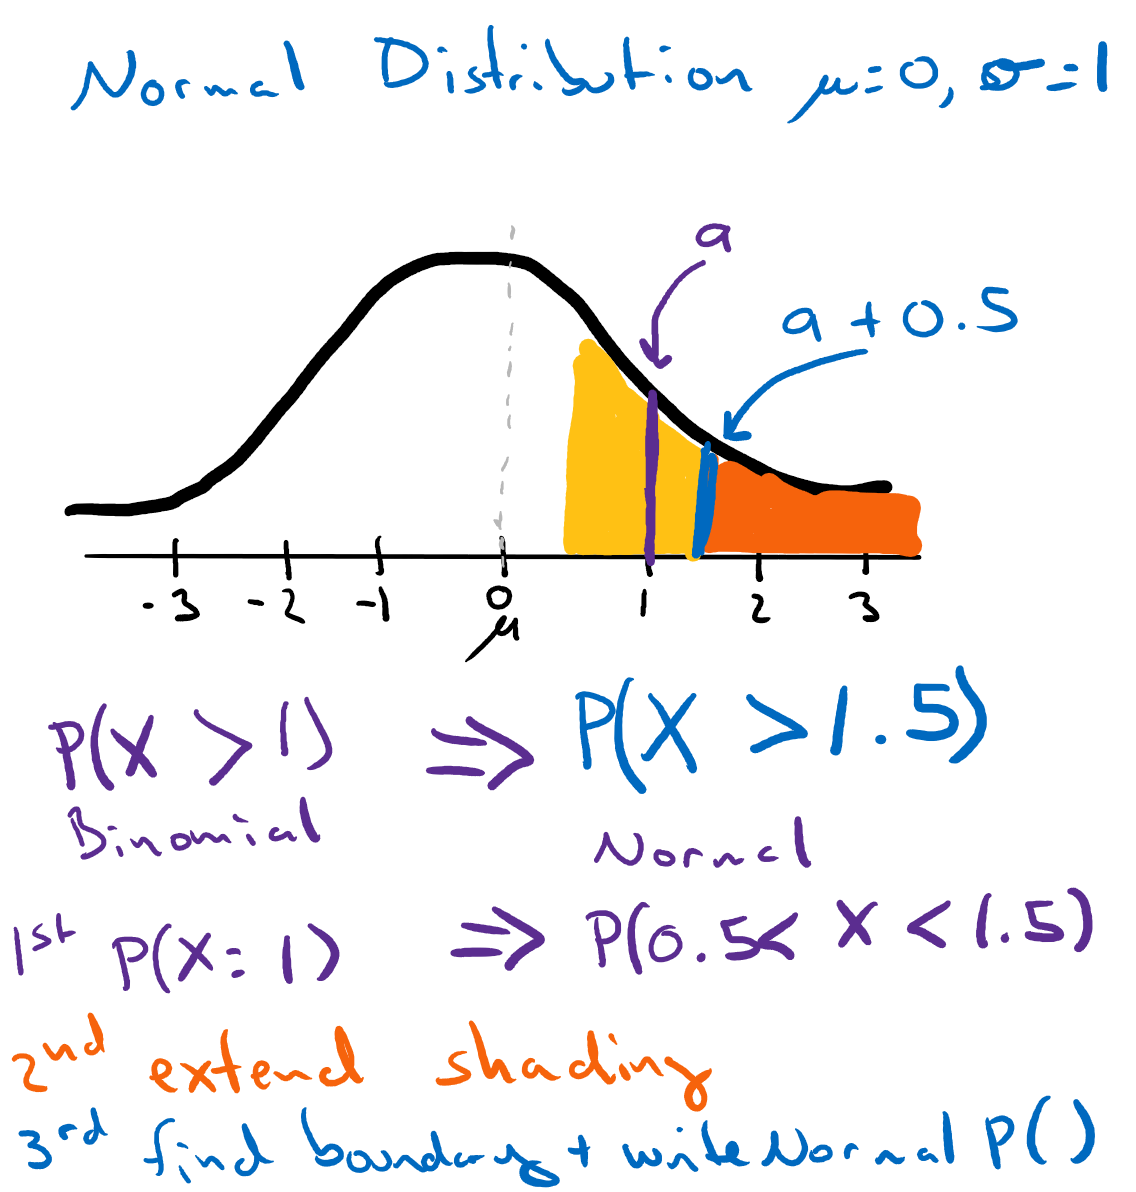 Normal Distribution μ=0, σ=1
a
a + 0.5
-3 -2 -1 0 1 2 3
μ
P(X > 1) ⇒ P(X > 1.5)
Binomial Normal
1st P(X = 1) ⇒ P(0.5 < X < 1.5)
2nd extend shading
3rd find boundary + write Normal P()